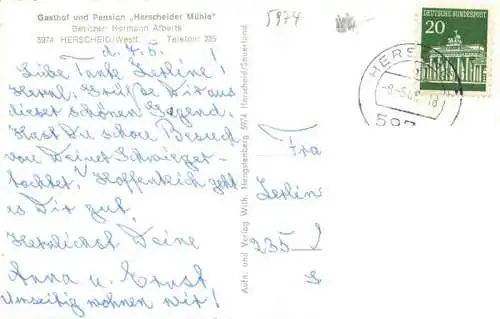 Gasthof und Pension „Herscheider Mühle"
Besitzer: Hermann Alberts
5974 HERSCHEID/Westf. Telefon: 225
d. 7.5.
Liebe Tante Serline!
Herzl. Grüße Dir aus
dieser schönen Gegend.
Hast Du schon Besuch
von Deiner Schwieger-
tochter? Hoffentlich geht
es Dir gut.
Herzlichst Deine
Anna u. Ernst
Umseitig wohnen wir!
Aufn. und Verlag Wilh. Hengstenberg 5974 Herscheid/Sauerland
5974
DEUTSCHE BUNDESPOST
20
HERS
-8.-5.6
18
597
Fra
Serlin
235
S